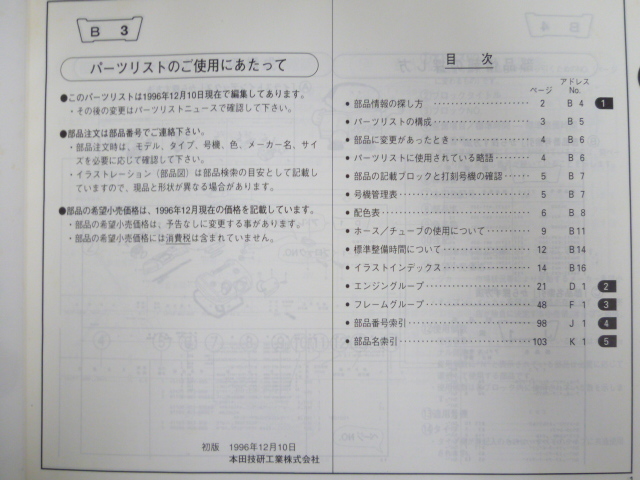 B 3
パーツリストのご使用にあたって
●このパーツリストは1996年12月10日現在で編集してあります。
・その後の変更はパーツリストニュースで確認して下さい。
●部品注文は部品番号でご連絡下さい。
・部品注文時は、モデル、タイプ、号機、色、メーカー名、サイ
ズを必要に応じて確認して下さい。
・イラストレーション（部品図）は部品検索の目安として記載し
ていますので、現品と形状が異なる場合があります。
●部品の希望小売価格は、1996年12月現在の価格を記載しています。
・部品の希望小売価格は、予告なしに変更する事があります。
・部品の希望小売価格には消費税は含まれていません。
初版 1996年12月10日
本田技研工業株式会社
目 次
ページ アドレス
No.
●部品情報の探し方 2 B 4 1
●パーツリストの構成 3 B 5
●部品に変更があったとき 4 B 6
●パーツリストに使用されている略語 4 B 6
●部品の記載ブロックと打刻号機の確認 5 B 7
●号機管理表 5 B 7
●配色表 6 B 8
●ホース／チューブの使用について 9 B11
●標準整備時間について 12 B14
●イラストインデックス 14 B16
●エンジングループ 21 D 1 2
●フレームグループ 48 F 1 3
●部品番号索引 98 J 1 4
●部品名索引 103 K 1 5